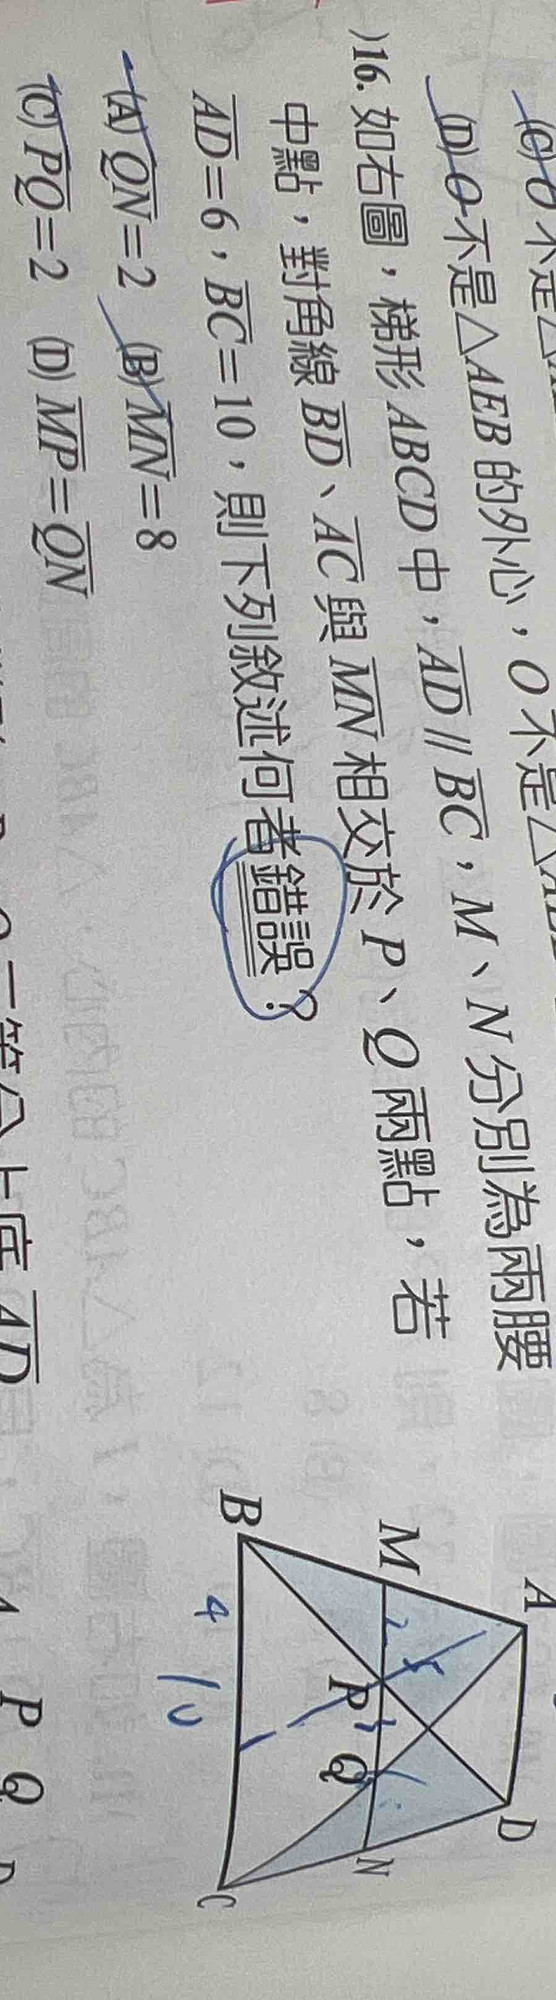 (C) O 不是△
(D) O 不是△AEB 的外心，O 不是△
)16. 如右圖，梯形 ABCD 中，AD // BC，M、N 分別為兩腰
中點，對角線 BD、AC 與 MN 相交於 P、Q 兩點，若
AD=6，BC=10，則下列敘述何者錯誤？
(A) QN=2 (B) MN=8
(C) PQ=2 (D) MP=QN
二等分上底 AD
A
D
M
P
Q
N
B
C
4
10
P Q